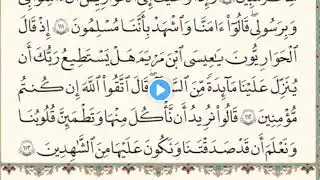 وَبِرَسُولِى قَالُوٓا۟ ءَامَنَّا وَٱشْهَدْ بِأَنَّنَا مُسْلِمُونَ ١١١ إِذْ قَالَ
ٱلْحَوَارِيُّونَ يَـٰعِيسَى ٱبْنَ مَرْيَمَ هَلْ يَسْتَطِيعُ رَبُّكَ أَن
يُنَزِّلَ عَلَيْنَا مَآئِدَةً مِّنَ ٱلسَّمَآءِ قَالَ ٱتَّقُوا۟ ٱللَّهَ إِن كُنتُم
مُّؤْمِنِينَ ١١٢ قَالُوا۟ نُرِيدُ أَن نَّأْكُلَ مِنْهَا وَتَطْمَئِنَّ قُلُوبُنَا
وَنَعْلَمَ أَن قَدْ صَدَقْتَنَا وَنَكُونَ عَلَيْهَا مِنَ ٱلشَّـٰهِدِينَ ١١٣